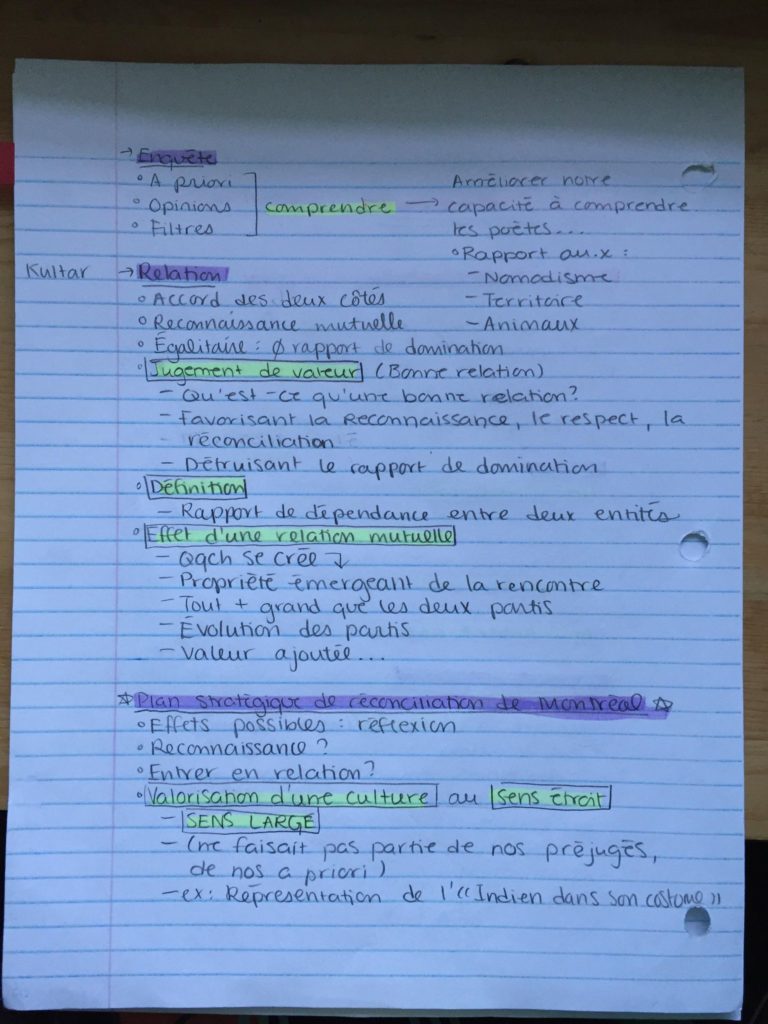 → Enquête
° A priori
° Opinions
° Filtres
comprendre →
Améliorer notre
capacité à comprendre
les poètes...
° Rapport au.x :
- Nomadisme
- Territoire
- Animaux
Kultar
→ Relation
° Accord des deux côtés
° Reconnaissance mutuelle
° Égalitaire : Ø rapport de domination
° Jugement de valeur (Bonne relation)
- Qu'est-ce qu'une bonne relation?
- Favorisant la Reconnaissance, le respect, la
réconciliation
- Détruisant le rapport de domination
° Définition
- Rapport de dépendance entre deux entités
° Effet d'une relation mutuelle
- Qqch se crée ↴
- Propriété émergeant de la rencontre
- Tout + grand que les deux partis
- Évolution des partis
- Valeur ajoutée...
☆ Plan stratégique de réconciliation de Montréal ☆
° Effets possibles : réflexion
° Reconnaissance ?
° Entrer en relation?
° Valorisation d'une culture au sens étroit
- SENS LARGE
- (ne faisait pas partie de nos préjugés,
de nos a priori)
- ex: Représentation de l'« Indien dans son costume »